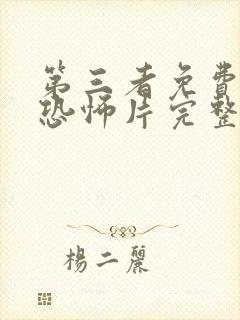 第三者免費
恐怖片完整
楊二麗